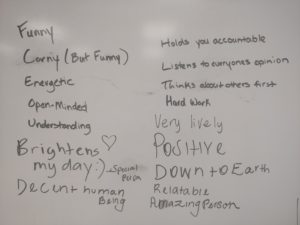 Funny
Corny (But Funny)
Energetic
Open-Minded
Understanding
Brightens
my day :)
-Special
Person
Decent human
Being
Holds you accountable
Listens to everyones opinion
Thinks about others first
Hard Work
Very lively
Positive
Down to Earth
Relatable
Amazing Person